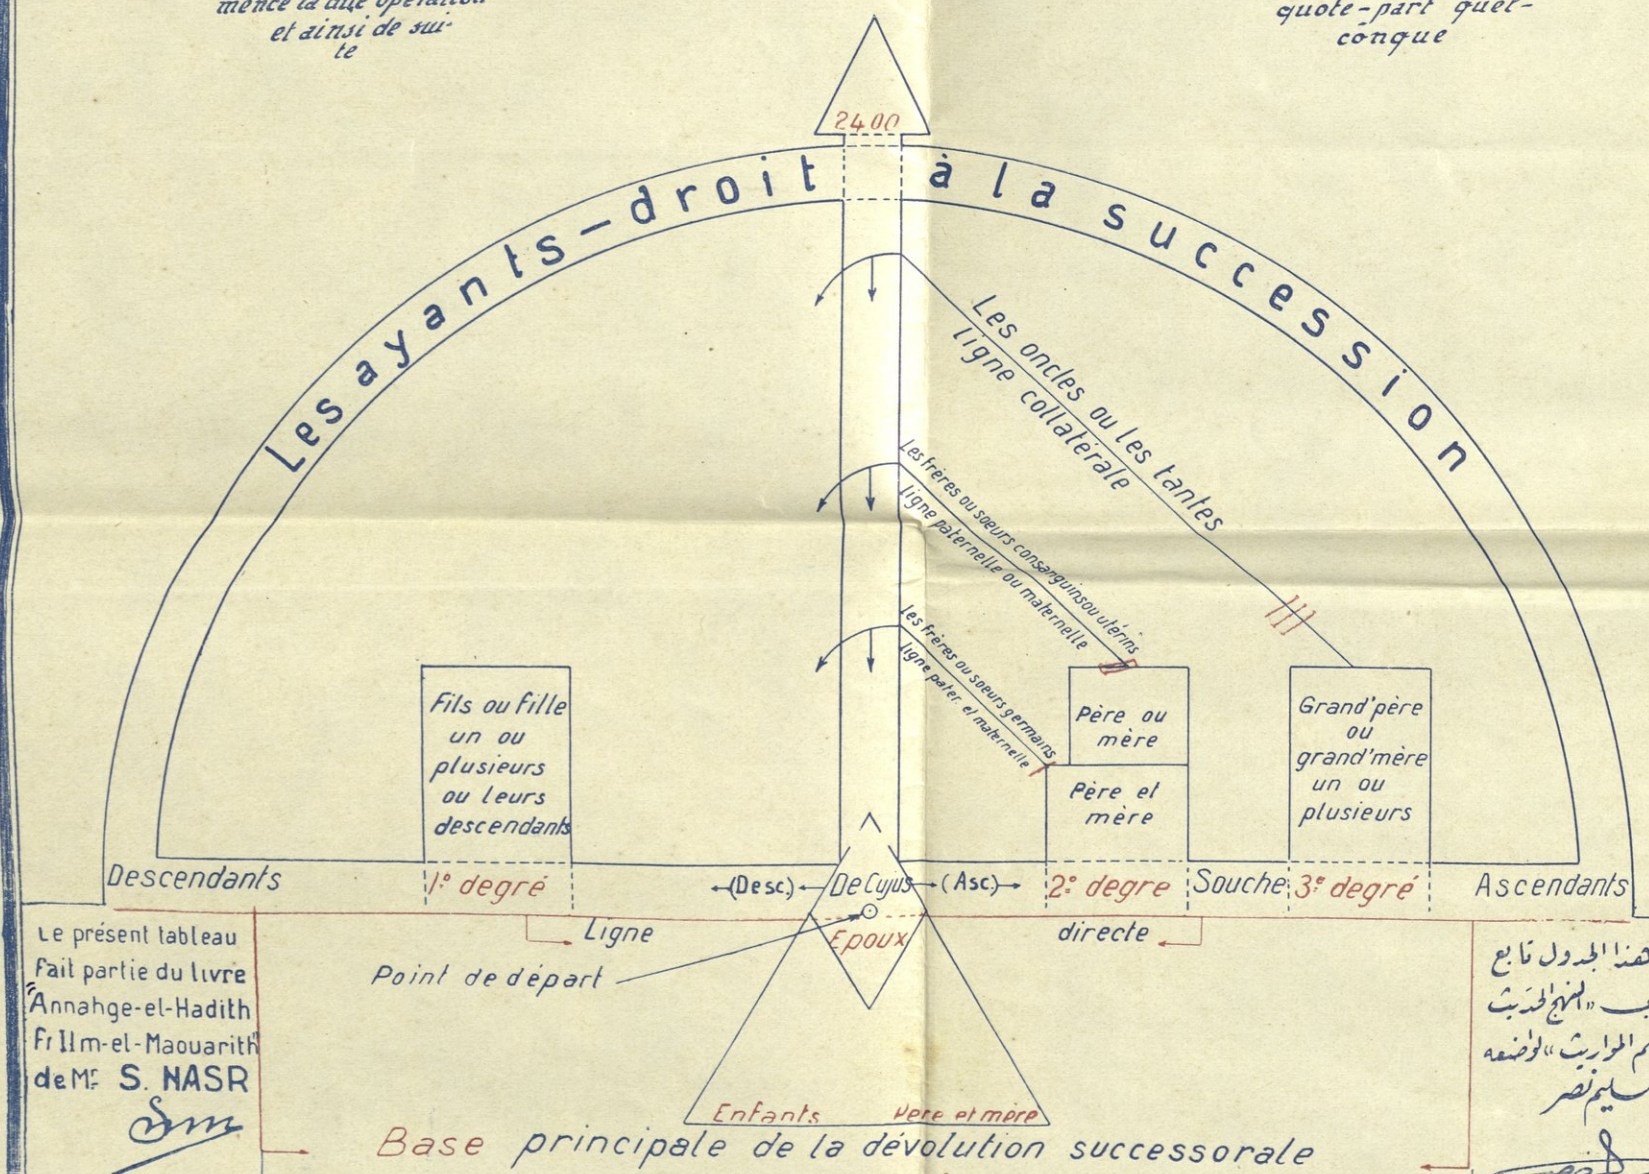 mence la dite opération
et ainsi de sui-
te
quote-part quel-
conque
2400
Les ayants-droit à la succession
Les oncles ou les tantes
ligne collatérale
Les frères ou soeurs consanguins ou utérins
ligne paternelle ou maternelle
Les frères ou soeurs germains
ligne pater. et maternelle
Fils ou fille
un ou
plusieurs
ou leurs
descendants
Père ou
mère
Père et
mère
Grand'père
ou
grand'mère
un ou
plusieurs
Descendants
1º degré
(Desc.)
De Cujus
(Asc.)
2º degre
Souche
3º degré
Ascendants
Ligne
Epoux
directe
Point de départ
Le présent tableau
fait partie du livre
"Annahge-el-Hadith
Fi Ilm-el-Maouarith"
de Mr S. NASR
هذا الجدول تابع
"النهج الحديث
المواريث" لواضعه
سليم نصر
Enfants
Père et mère
Base principale de la dévolution successorale